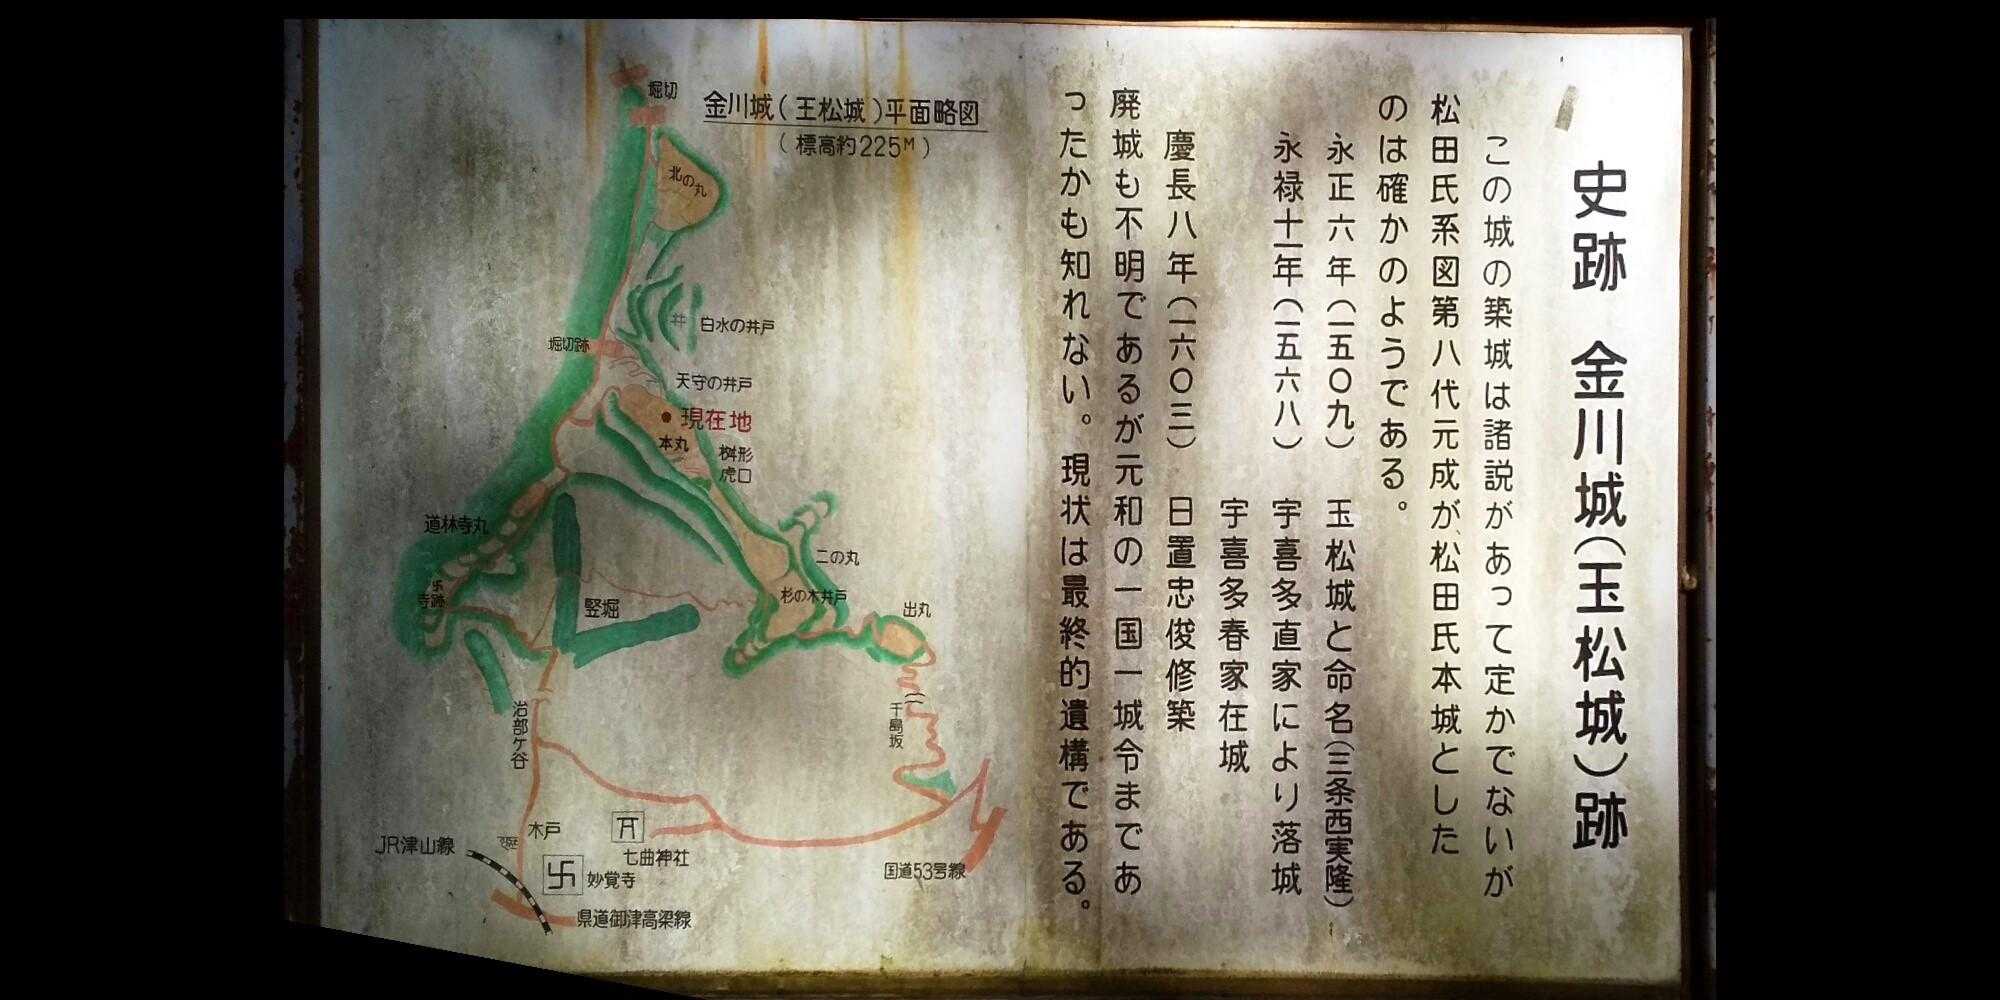 史跡 金川城(玉松城)跡
この城の築城は諸説があって定かでないが
松田氏系図第八代元成が、松田氏本城とした
のは確かのようである。
永正六年(一五〇九) 玉松城と命名(三条西実隆)
永禄十一年(一五六八) 宇喜多直家により落城
宇喜多春家在城
慶長八年(一六〇三) 日置忠俊修築
廃城も不明であるが元和の一国一城令まであ
ったかも知れない。現状は最終的遺構である。
金川城(王松城)平面略図
(標高約225M)
堀切
北の丸
井 白水の井戸
堀切跡
天守の井戸
現在地
本丸
桝形
虎口
道林寺丸
二の丸
杉の木井戸
寺跡
竪堀
出丸
治部ケ谷
千島坂
木戸
七曲神社
JR津山線
卍 妙覚寺
国道53号線
県道御津高梁線